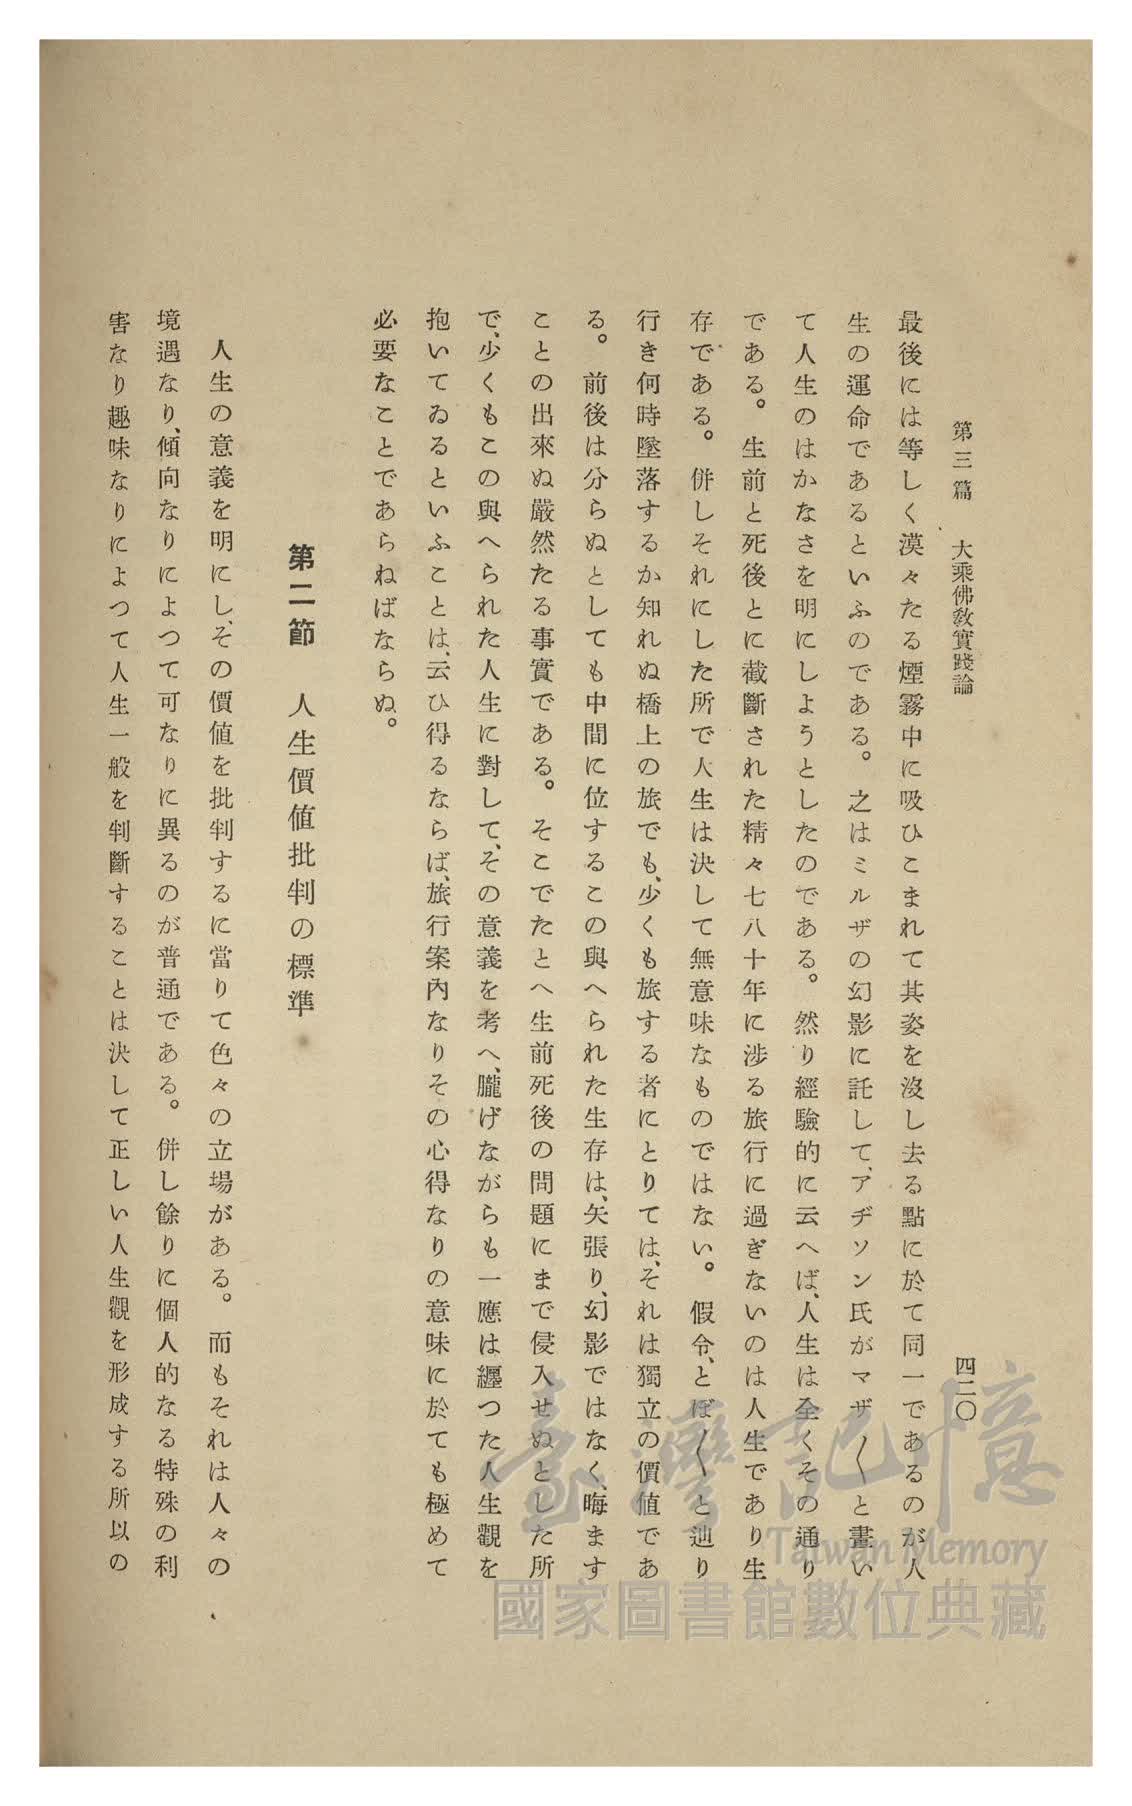 第三篇　大乘佛敎實踐論
四二〇
最後には等しく漠々たる煙霧中に吸ひこまれて其姿を沒し去る點に於て同一であるのが人
生の運命であるといふのである。之はミルザの幻影に託して、アヂソン氏がマザ〱と畫い
て人生のはかなさを明にしようとしたのである。然り經驗的に云へば、人生は全くその通り
である。生前と死後とに截斷された精々七八十年に涉る旅行に過ぎないのは人生であり生
存である。併しそれにした所で人生は決して無意味なものではない。假令、とぼ〱と辿り
行き何時墜落するか知れぬ橋上の旅でも、少くも旅する者にとりては、それは獨立の價値であ
る。前後は分らぬとしても中間に位するこの與へられた生存は、矢張り、幻影ではなく、晦ます
ことの出來ぬ嚴然たる事實である。そこでたとへ生前死後の問題にまで侵入せぬとした所
で、少くもこの與へられた人生に對して、その意義を考へ、朧げながらも一應は纒つた人生觀を
抱いてゐるといふことは、云ひ得るならば、旅行案內なりその心得なりの意味に於ても極めて
必要なことであらねばならぬ。
第二節　人生價値批判の標準
人生の意義を明にし、その價値を批判するに當りて色々の立場がある。而もそれは人々の
境遇なり、傾向なりによつて可なりに異るのが普通である。併し餘りに個人的なる特殊の利
害なり趣味なりによつて人生一般を判斷することは決して正しい人生觀を形成する所以の
臺灣記憶
Taiwan Memory
國家圖書館數位典藏